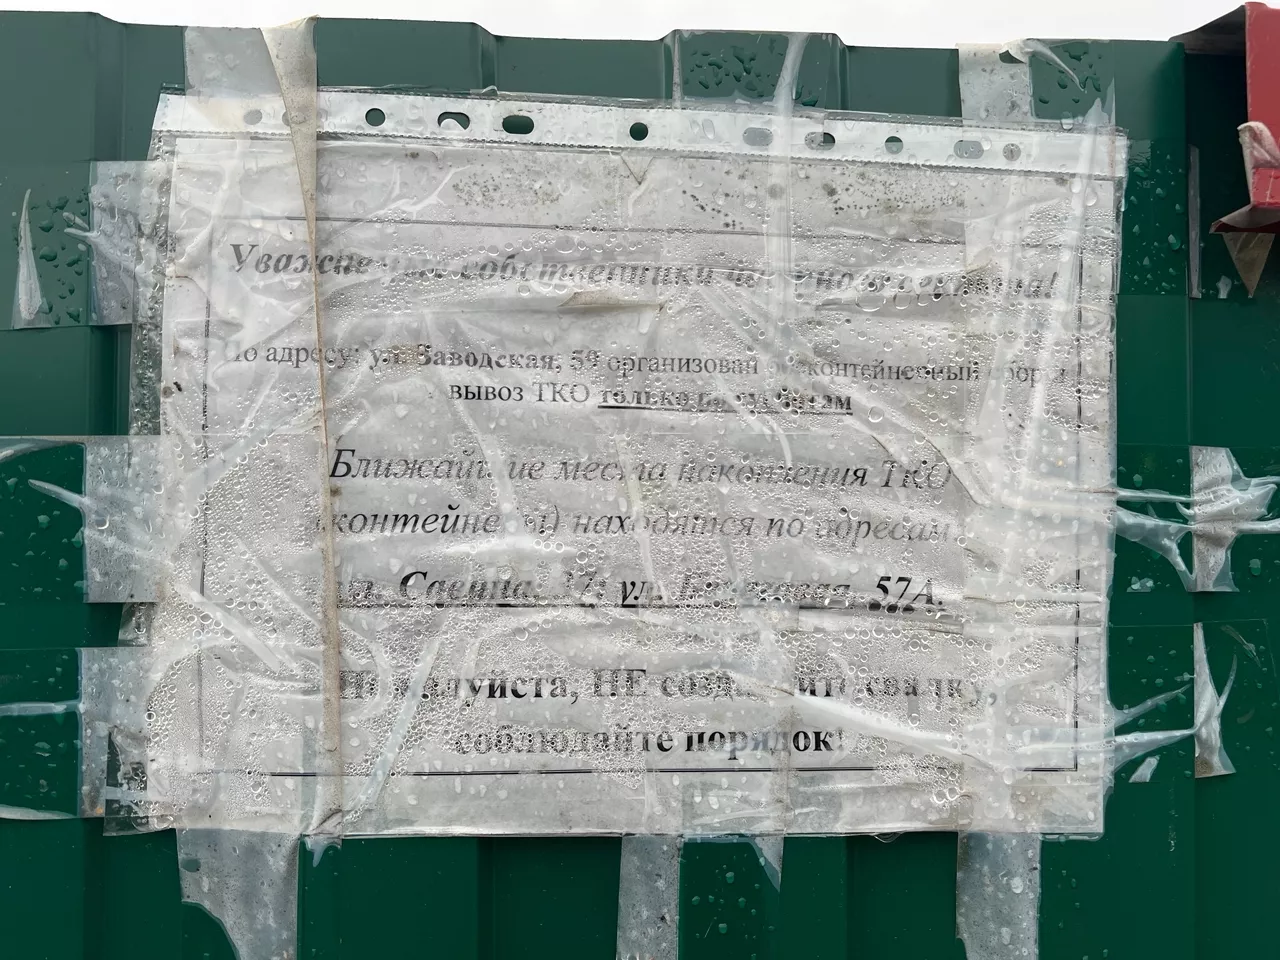 Уважаемые собственники частного сектора!
По адресу: ул. Заводская, 59 организован бесконтейнерный сбор и
вывоз ТКО только по субботам
Ближайшие места накопления ТКО
(контейнеры) находятся по адресам
ул. 37; ул. 57А.
Пожалуйста, НЕ создавайте свалку,
соблюдайте порядок!